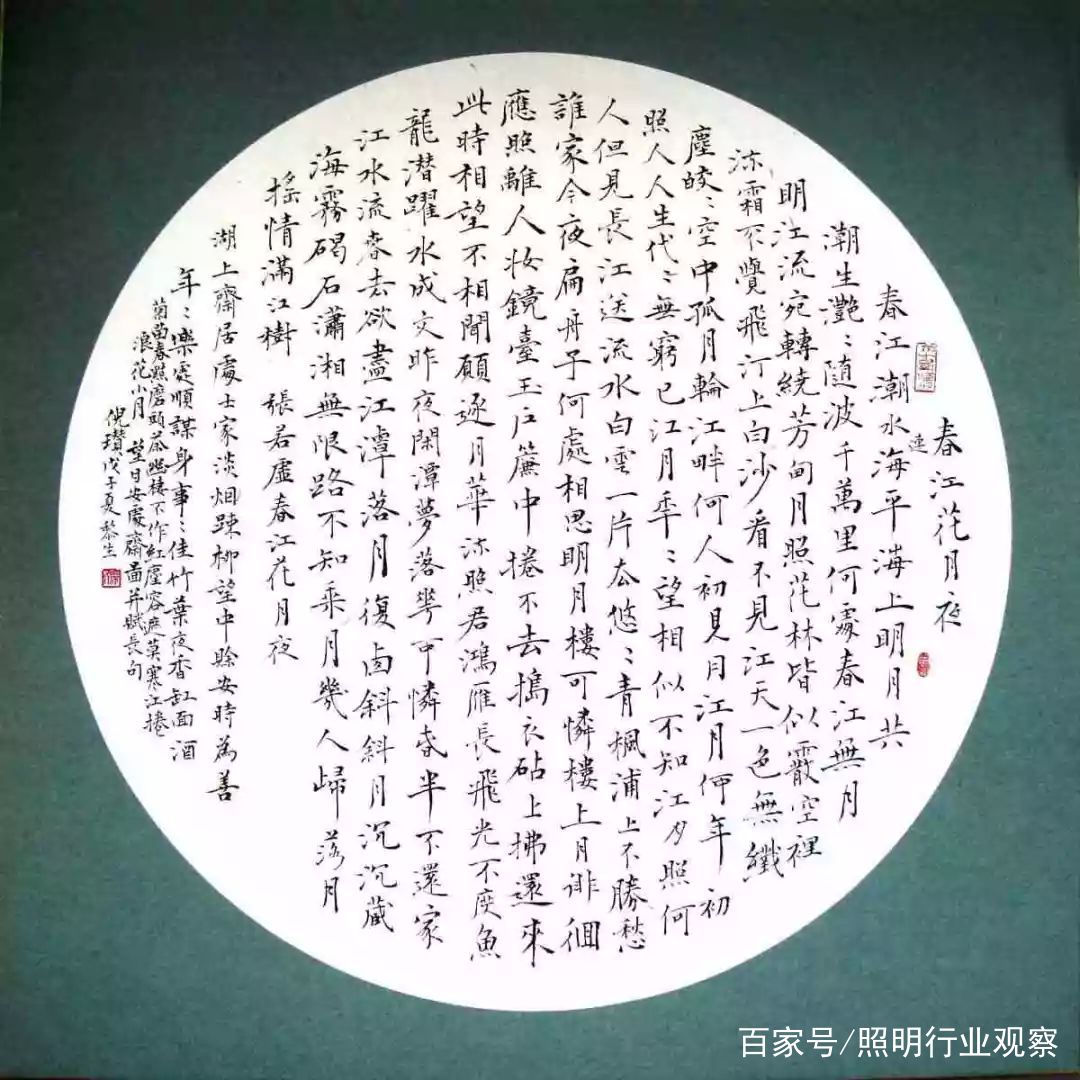 春江花月夜
春江潮水海平海上明月共
連
潮生灔〻随波千萬里何處春江無月
明江流宛轉繞芳甸月照花林皆似霰空裡
流霜不覺飛汀上白沙看不見江天一色無纖
塵皎〻空中孤月輪江畔何人初見月江月何年初
照人人生代〻無窮已江月年〻望相似不知江月照何
人但見長江送流水白雲一片去悠〻青楓浦上不勝愁
誰家今夜扁舟子何處相思明月樓可憐樓上月徘徊
應照離人妝鏡臺玉戶簾中捲不去搗衣砧上拂還來
此時相望不相聞願逐月華流照君鴻雁長飛光不度魚
龍潛躍水成文昨夜閑潭夢落花可憐春半不還家
江水流春去欲盡江潭落月復西斜斜月沉沉藏
海霧碣石瀟湘無限路不知乘月幾人歸落月
搖情滿江樹 張若虛春江花月夜
湖上齋居處士家淡烟踈柳望中賒安時為善
年〻樂處順謀身事〻佳竹葉夜香缸面酒
菊苗春點磨頭茶幽樓不作紅塵客遮莫寒江捲
浪花小月 望日安處齋圖并賦長句
倪瓚戊子夏黎生
百家号/照明行业观察